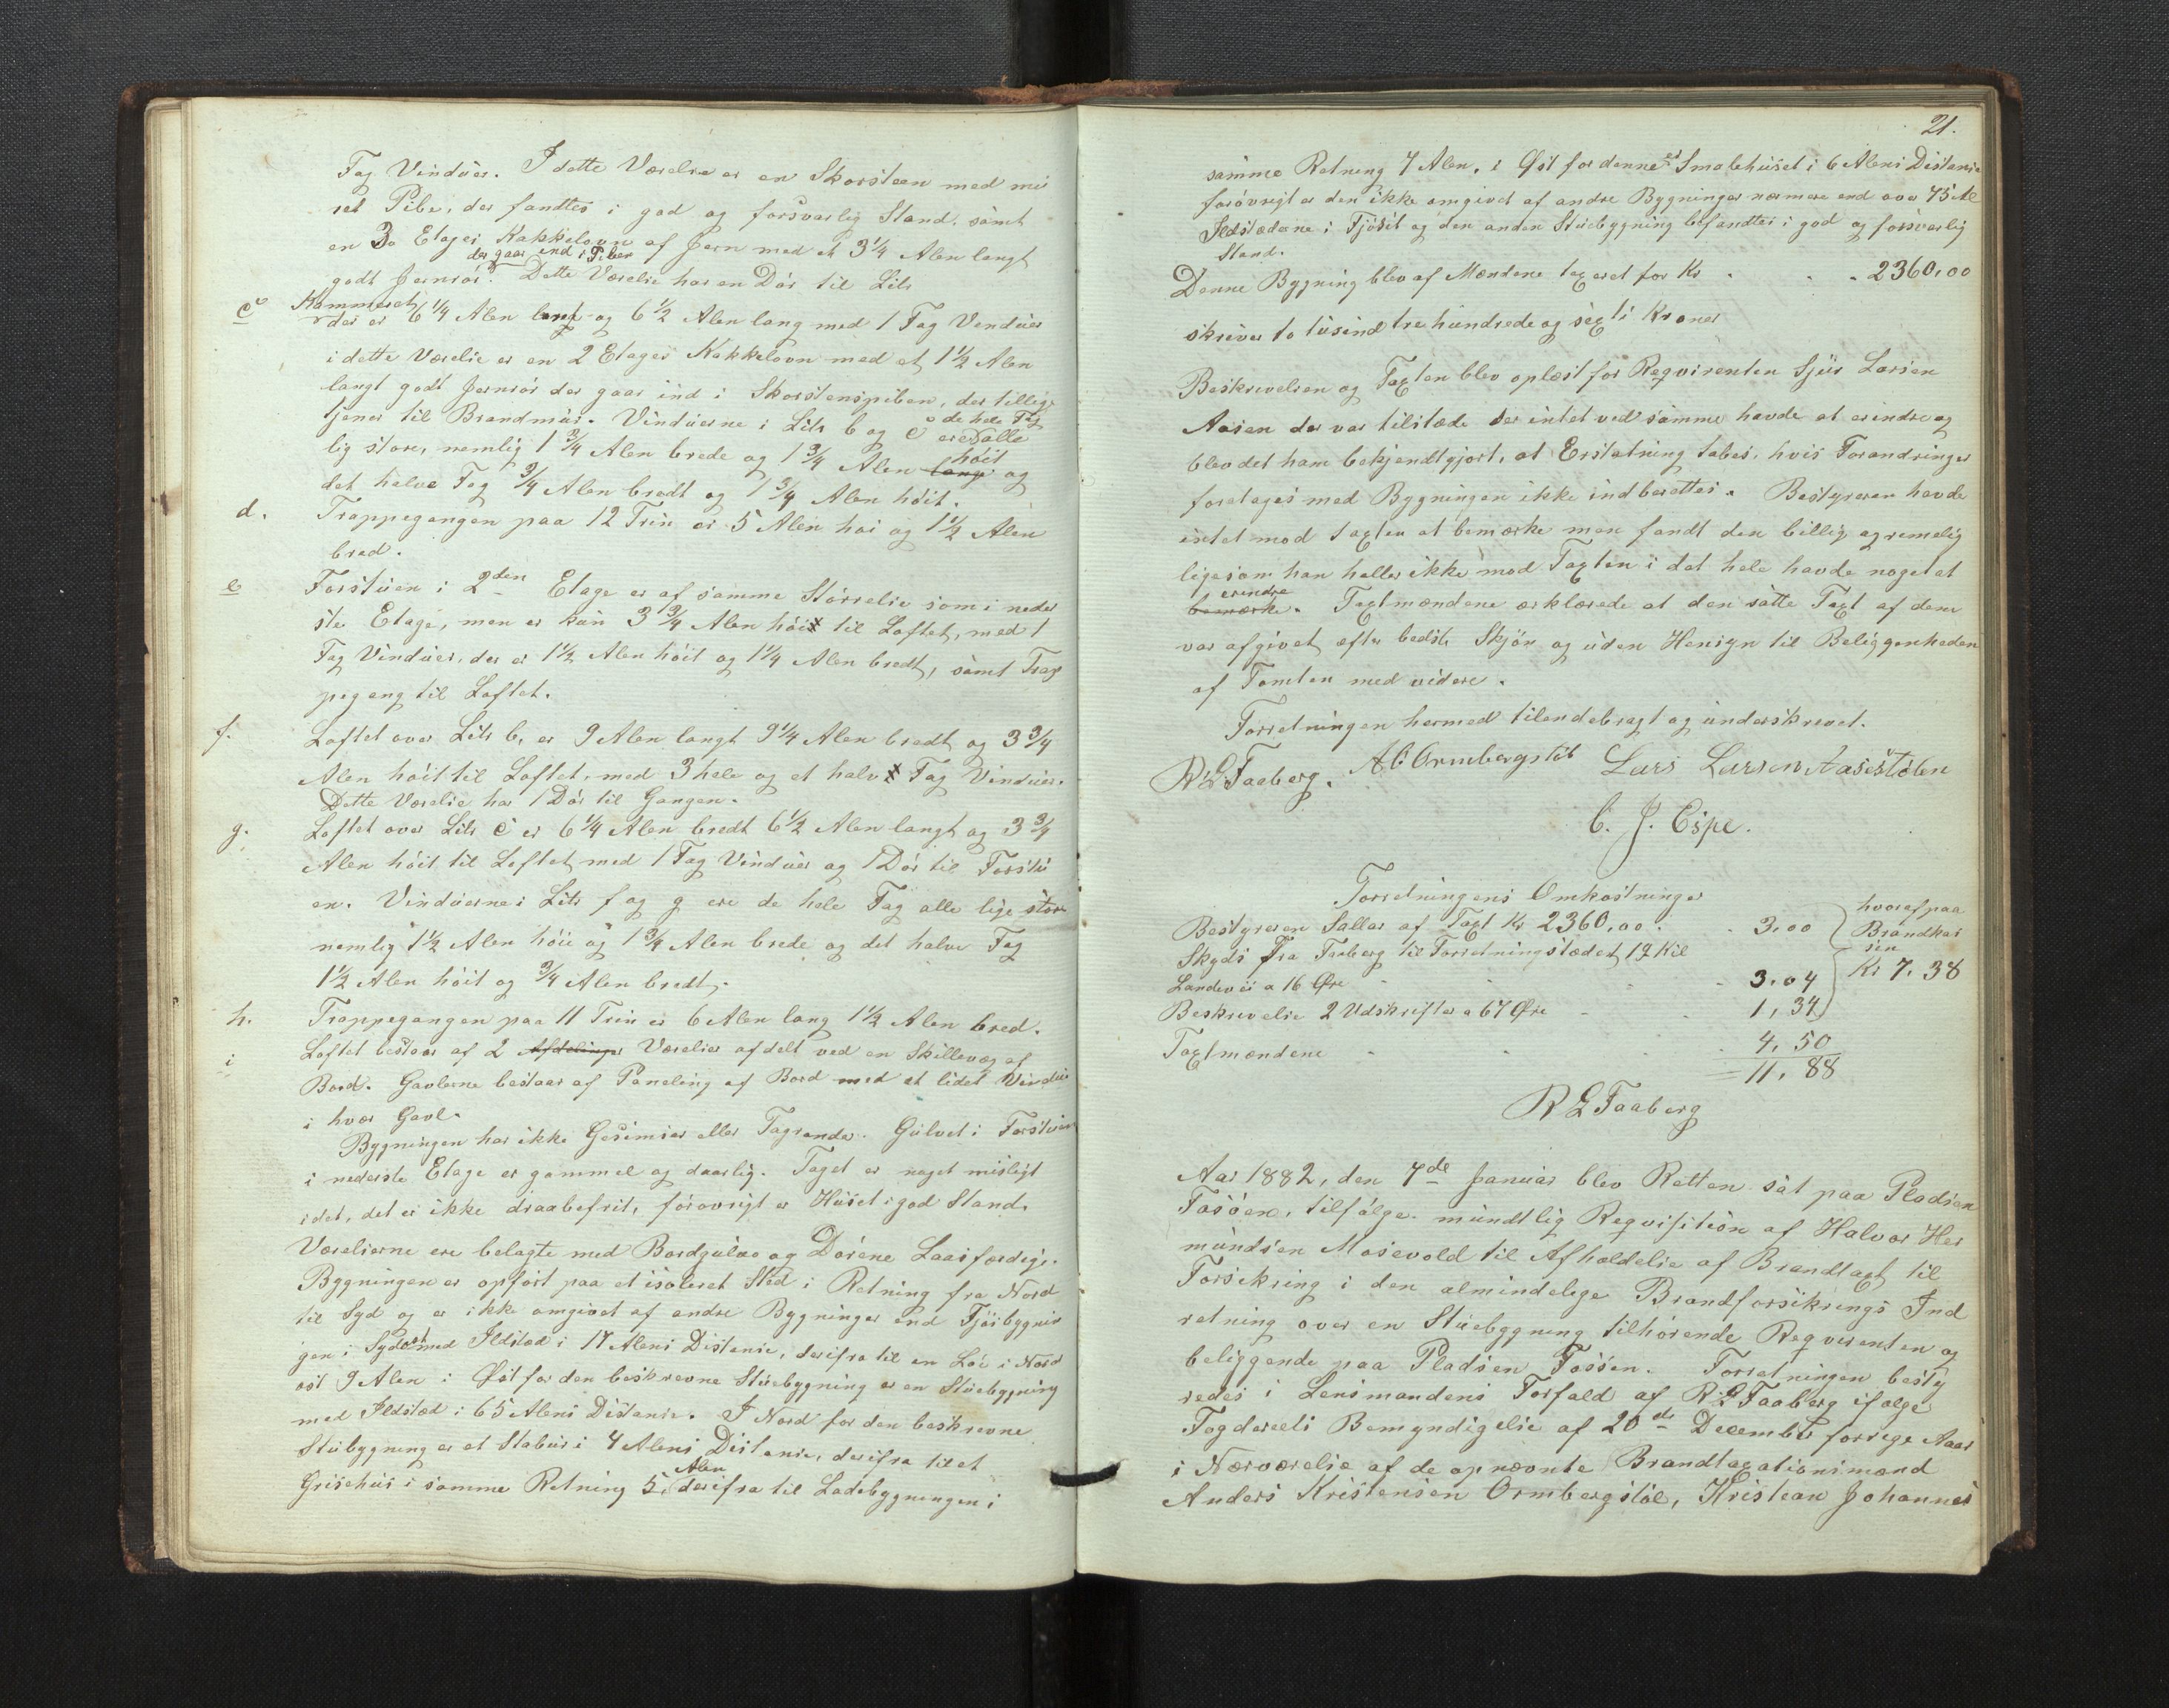 Tag Vinduer. I dette Værelse er en Skorsteen med mu
ret Pibe, der fandtes i god og forsvarlig Stand, samt
en 3 Etages Kakkelovn af Jern med et 3 1/4 Alen langt
der gaar ind i Piben
godt Jernrør. Dette Værelse har en Dør til Litr
c Kammeret, der er 6 1/4 Alen langt og 6 1/2 Alen lang med 1 Fag Vinduer
i dette Værelse er en 2 Etages Kakkelovn med et 1 1/2 Alen
langt godt Jernrør der gaar ind i Skorstenspiben, der tillige
tjener til Brandmur. Vinduerne i Litr b og c ere de hele Fag alle
lig store, nemlig 1 3/4 Alen brede og 1 3/4 Alen lange høit og
det halve Fag 3/4 Alen bredt og 1 3/4 Alen høit.
d. Trappegangen paa 12 Trin er 5 Alen høi og 1 1/2 Alen
bred.
e Forstuen i 2den Etage er af samme Størrelse som i neder
ste Etage, men er kun 3 3/4 Alen høi til Loftet, med 1
Fag Vinduer, der er 1 1/2 Alen høit og 1 1/4 Alen bredt, samt Trap
pegang til Loftet.
f. Loftet over Litr b, er 9 Alen langt 9 1/4 Alen bredt og 3 3/4
Alen høit til Loftet, med 3 hele og et halv Fag Vinduer.
Dette Værelse har 1 Dør til Gangen.
g. Loftet over Litr c er 6 1/4 Alen bredt 6 1/2 Alen langt og 3 3/4
Alen høit til Loftet med 1 Fag Vinduer og 1 Dør til Forstu
en. Vinduerne i Litr f og g ere de hele Fag alle lige store
nemlig 1 1/2 Alen høie og 1 3/4 Alen brede og det halve Fag
1 1/2 Alen høit og 3/4 Alen bredt.
h. Trappegangen paa 11 Trin er 6 Alen lang 1 1/2 Alen bred.
i Loftet bestaar af 2 Afdelinger Værelser afdelt ved en Skillevæg af
Bord. Gavlerne bestaar af Paneling af Bord med et lidet Vindu
i hver Gavl.
Bygningen har ikke Gesimser eller Tagrender. Gulvet i Forstuen
i nederste Etage er gammel og daarlig. Taget er noget misligt
idet, det er ikke draabefrit, forøvrigt er Huset i god Stand,
Værelserne ere belagte med Bordgulve og Dørene Laasfærdige.
Bygningen er opført paa et isoleret Sted i Retning fra Nord
til Syd og er ikke omgivet af andre Bygninger end Fjøsbygnin
gen i Sydost med Ildsted i 17 Alens Distanse, derifra til en Lóe i Nord
ost 9 Alen i Øst for den beskrevne Stuebygning er en Stuebygning
med Ildsted i 65 Alens Distanse. I Nord for den beskrevne
Stubygning er et Stabur i 4 Alens Distanse, derifra til et
Grisehus i samme Retning 5, Alen derifra til Ladebygningen i
21.
samme Retning 7 Alen, i Øst for denne er Smalehuset i 6 Alens Distanse
forøvrigt er den ikke omgivet af andre Bygninger nærmere end over 75 Al
Ildstederne i Fjøset og den anden Stuebygning befandtes i god og forsvarlig
Stand.
Denne Bygning blev af Mændene taxeret for Kr . . . 2360,00
skriver to tusind tre hundrede og sexti Kroner
Beskrivelsen og Taxten blev oplæst for Reqvirenten Sjur Larsen
Aasen der var tilstæde der intet ved samme havde at erindre og
blev det ham bekjendtgjort, at Erstatning tabes, hvis Forandringer
foretages med Bygningen ikke indberettes. Bestyreren havde
intet mod Taxten at bemærke men fandt den billig og rimelig
ligesom han heller ikke mod Taxten i det hele havde noget at
bemærke erindre. Taxtmændene erklærede at den satte Taxt af dem
var afgivet efter bedste Skjøn og uden Hensyn til Beliggenheden
af Tomten med videre.
Forretningen hermed tilendebragt og underskrevet.
R L Faaberg. A C Ormbergstøl Lars Larsen Aasestølen
C. J. Espe.
Forretningens Omkostninger
Bestyreren Sallær af Taxt Kr 2360,00 . . 3,00
Skyds fra Faaberg til Forretningstædet 19 Kil
Landevei a 16 Øre . . . 3,04
Beskrivelse 2 Udskrifter a 67 Øre . . 1,34
hvoraf paa
Brandkas
sen
Kr 7,38
Taxtmændene . . . 4,50
= 11,88
R L Faaberg
Aar 1882, den 7de Januar blev Retten sat paa Pladsen
Fossen, tilfølge mundtlig Reqvisition af Halvor Her
mundsen Mosevold til Afholdelse af Brandtaxt til
Forsikring i den almindelige Brandforsikrings Ind
retning over en Stuebygning tilhørende Reqvirenten og
beliggende paa Pladsen Fossen. Forretningen besty
redes i Lensmandens Forfald af R L Faaberg ifølge
Fogderiets Bemyndigelse af 20de December forrige Aar
i Nærværelse af de opnævnte Brandtaxationsmænd
Anders Kristensen Ormbergstøl, Kristian Johannes